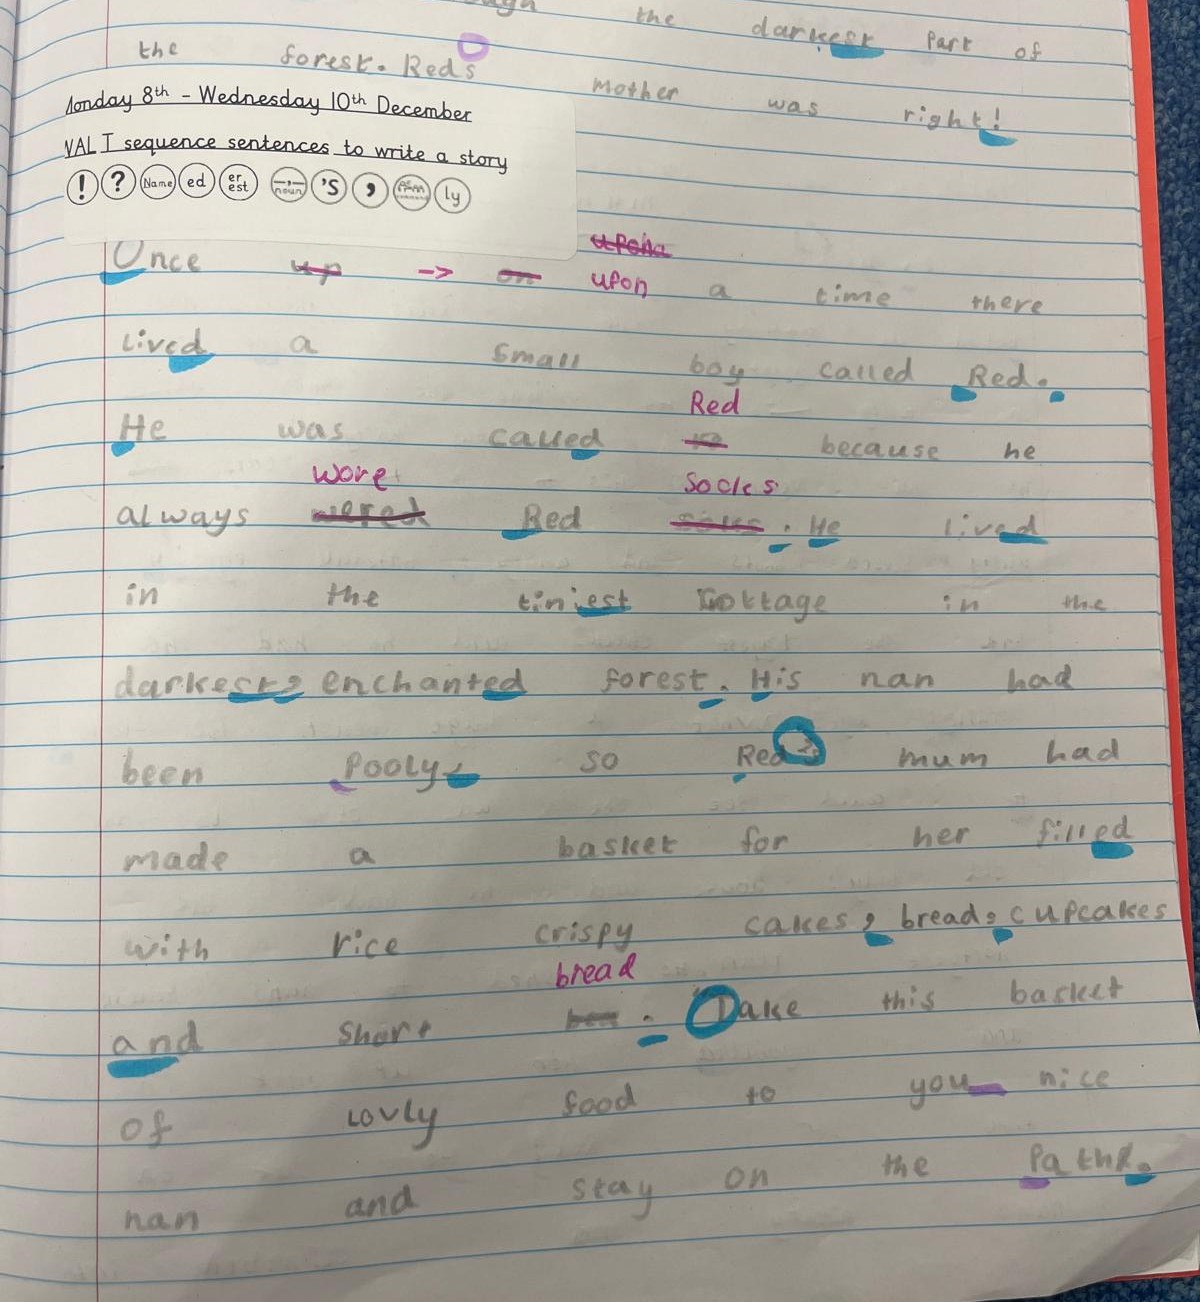 the darkest part of
the forest. Reds mother was right!
Monday 8th - Wednesday 10th December
VALT sequence sentences to write a story
! ? Name ed er est noun 's , ly
upona
Once up -> on upon a time there
lived a small boy called Red.
Red
He was called because he
wore socks
always wered Red . He lived
in the tiniest cottage in the
darkest, enchanted forest. His nan had
been Pooly, so Red's mum had
made a basket for her filled
with rice crispy cakes, bread, cupcakes
bread
and short . Take this basket
of Lovly food to you nice
nan and stay on the Path.